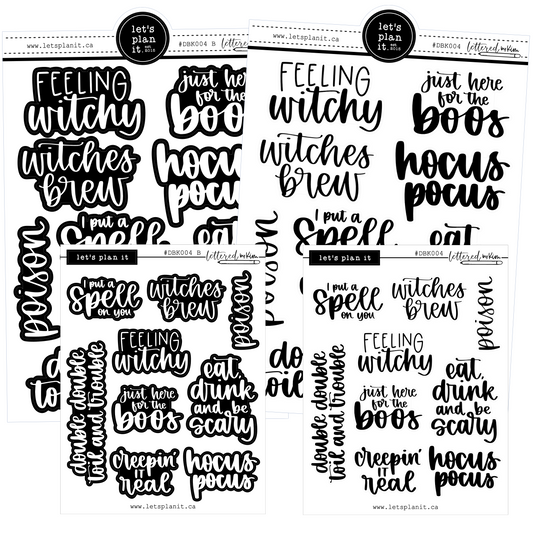 let's
plan
it.
est. 2015
www.letsplanit.ca
#DBK004 B
lettered by Kim
FEELING
witchy
just here
for the
boos
witches
brew
hocus
pocus
I put a
spell
eat,
poison
let's
plan
it.
est. 2015
www.letsplanit.ca
#DBK004
lettered by Kim
FEELING
witchy
just here
for the
boos
witches
brew
hocus
pocus
I put a
spell
eat,
poison
let's plan it
#DBK004 B
lettered by Kim
I put a
spell
on you
witches
brew
poison
FEELING
witchy
double double
toil and trouble
just here
for the
boos
eat,
drink
and be
scary
creepin'
IT
real
hocus
pocus
www.letsplanit.ca
let's plan it
#DBK004
lettered by Kim
I put a
spell
on you
witches
brew
poison
FEELING
witchy
double double
toil and trouble
just here
for the
boos
eat,
drink
and be
scary
creepin'
IT
real
hocus
pocus
www.letsplanit.ca